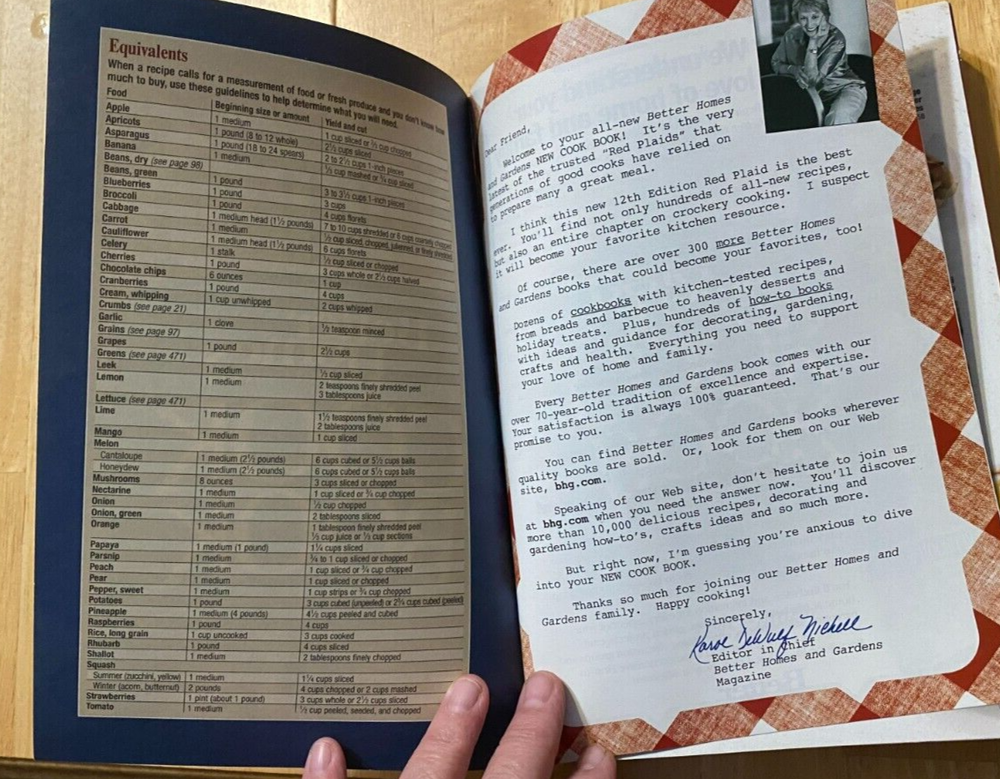 Equivalents
When a recipe calls for a measurement of food or fresh produce and you don't know how
much to buy, use these guidelines to help determine what you will need.
Food Beginning size or amount Yield and cut
Apple 1 medium 1 cup sliced or chopped
Apricots 1 pound (8 to 12 whole) 2½ cups sliced
Asparagus 1 pound (18 to 24 spears) 2 to 2½ cups 1-inch pieces
Banana 1 medium cup mashed or ¾ cup sliced
Beans, dry (see page 98)
Beans, green 1 pound 3 to 3½ cups 1-inch pieces
Blueberries 1 pound 3 cups
Broccoli 1 pound 4 cups florets
Cabbage 1 medium head (1½ pounds) 7 to 10 cups shredded or 6 cups coarsely chopped
Carrot 1 medium ½ cup sliced, chopped, julienned, or finely shredded
Cauliflower 1 medium head (1½ pounds) 6 cups florets
Celery 1 stalk ½ cup sliced or chopped
Cherries 1 pound 3 cups whole or 2½ cups halved
Chocolate chips 6 ounces 1 cup
Cranberries 1 pound 4 cups
Cream, whipping 1 cup unwhipped 2 cups whipped
Crumbs (see page 21)
Garlic 1 clove ½ teaspoon minced
Grains (see page 97)
Grapes 1 pound 2½ cups
Greens (see page 471)
Leek 1 medium cup sliced
Lemon 1 medium 2 teaspoons finely shredded peel
3 tablespoons juice
Lettuce (see page 471)
Lime 1 medium 1½ teaspoons finely shredded peel
2 tablespoons juice
Mango 1 medium 1 cup sliced
Melon
Cantaloupe 1 medium (2½ pounds) 6 cups cubed or 5½ cups balls
Honeydew 1 medium (2½ pounds) 6 cups cubed or 5½ cups balls
Mushrooms 8 ounces 3 cups sliced or chopped
Nectarine 1 medium 1 cup sliced or ¾ cup chopped
Onion 1 medium ½ cup chopped
Onion, green 1 medium 2 tablespoons sliced
Orange 1 medium 1 tablespoon finely shredded peel
cup juice or cup sections
Papaya 1 medium (1 pound) 1¼ cups sliced
Parsnip 1 medium ¾ to 1 cup sliced or chopped
Peach 1 medium 1 cup sliced or ¾ cup chopped
Pear 1 medium 1 cup sliced or chopped
Pepper, sweet 1 medium 1 cup strips or ¾ cup chopped
Potatoes 1 pound 3 cups cubed (unpeeled) or 2¾ cups cubed (peeled)
Pineapple 1 medium (4 pounds) 4½ cups peeled and cubed
Raspberries 1 pound 4 cups
Rice, long grain 1 cup uncooked 3 cups cooked
Rhubarb 1 pound 4 cups sliced
Shallot 1 medium 2 tablespoons finely chopped
Squash
Summer (zucchini, yellow) 1 medium 1¼ cups sliced
Winter (acorn, butternut) 2 pounds 4 cups chopped or 2 cups mashed
Strawberries 1 pint (about 1 pound) 3 cups whole or 2½ cups sliced
Tomato 1 medium ½ cup peeled, seeded, and chopped
Dear Friend,
Welcome to your all-new Better Homes
and Gardens NEW COOK BOOK! It's the very
latest of the trusted "Red Plaids" that
generations of good cooks have relied on
to prepare many a great meal.
I think this new 12th Edition Red Plaid is the best
ever. You'll find not only hundreds of all-new recipes,
but also an entire chapter on crockery cooking. I suspect
it will become your favorite kitchen resource.
Of course, there are over 300 more Better Homes
and Gardens books that could become your favorites, too!
Dozens of cookbooks with kitchen-tested recipes,
from breads and barbecue to heavenly desserts and
holiday treats. Plus, hundreds of how-to books
with ideas and guidance for decorating, gardening,
crafts and health. Everything you need to support
your love of home and family.
Every Better Homes and Gardens book comes with our
over 70-year-old tradition of excellence and expertise.
Your satisfaction is always 100% guaranteed. That's our
promise to you.
You can find Better Homes and Gardens books wherever
quality books are sold. Or, look for them on our Web
site, bhg.com.
Speaking of our Web site, don't hesitate to join us
at bhg.com when you need the answer now. You'll discover
more than 10,000 delicious recipes, decorating and
gardening how-to's, crafts ideas and so much more.
But right now, I'm guessing you're anxious to dive
into your NEW COOK BOOK.
Thanks so much for joining our Better Homes and
Gardens family. Happy cooking!
Sincerely,
Karol DeWulf Nickell
Editor in Chief
Better Homes and Gardens
Magazine